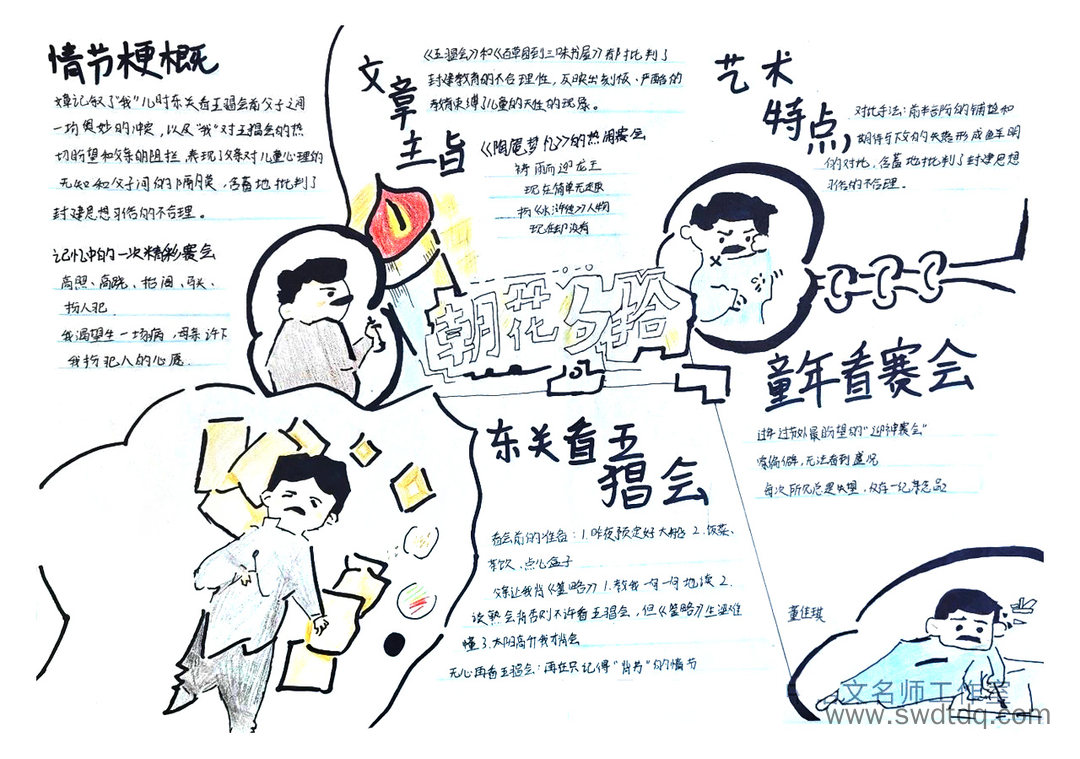 情节梗概
文章记叙了“我”儿时东关看五猖会前父子之间
一场奥妙的冲突，以及“我”对五猖会的热
切盼望和父亲的阻拦，表现了父亲对儿童心理的
无知和父子间的隔膜，含蓄地批判了
封建思想习俗的不合理。
记忆中的一次精彩赛会
高照、高跷、抬阁、马头、
扮人犯.
我渴望生一场病，母亲许下
我扮犯人的心愿.
文章主旨
《五猖会》和《百草园到三味书屋》都批判了
封建教育的不合理性，反映出刻板、严酷的
教育束缚了儿童的天性的现象。
《陶庵梦忆》的热闹赛会
祷雨而迎龙王
现在简单无走虫
扮《水浒传》人物
现在却没有
艺术特点
对比手法：前半部分的铺垫和
期待与下文的失落形成鲜明
的对比，含蓄地批判了封建思想
习俗的不合理。
朝花夕拾
童年看赛会
过年过节外最盼望的“迎神赛会”
家偏僻，无法看到盛况
每次所见总是失望，仅存一纪录笔品2
东关看五
猖会
看会前的准备：1.昨夜预定好大船 2.饭菜、
茶饮、点心盒子
父亲让我背《鉴略》 1.教我一句一句地读 2.
读熟会背否则不许看五猖会，但《鉴略》生涩难
懂 3.太阳高升我梢会
无心再看五猖会：再在只记得“背书”的情节
董佳琪
文名师工作室
www.swdtdq.com